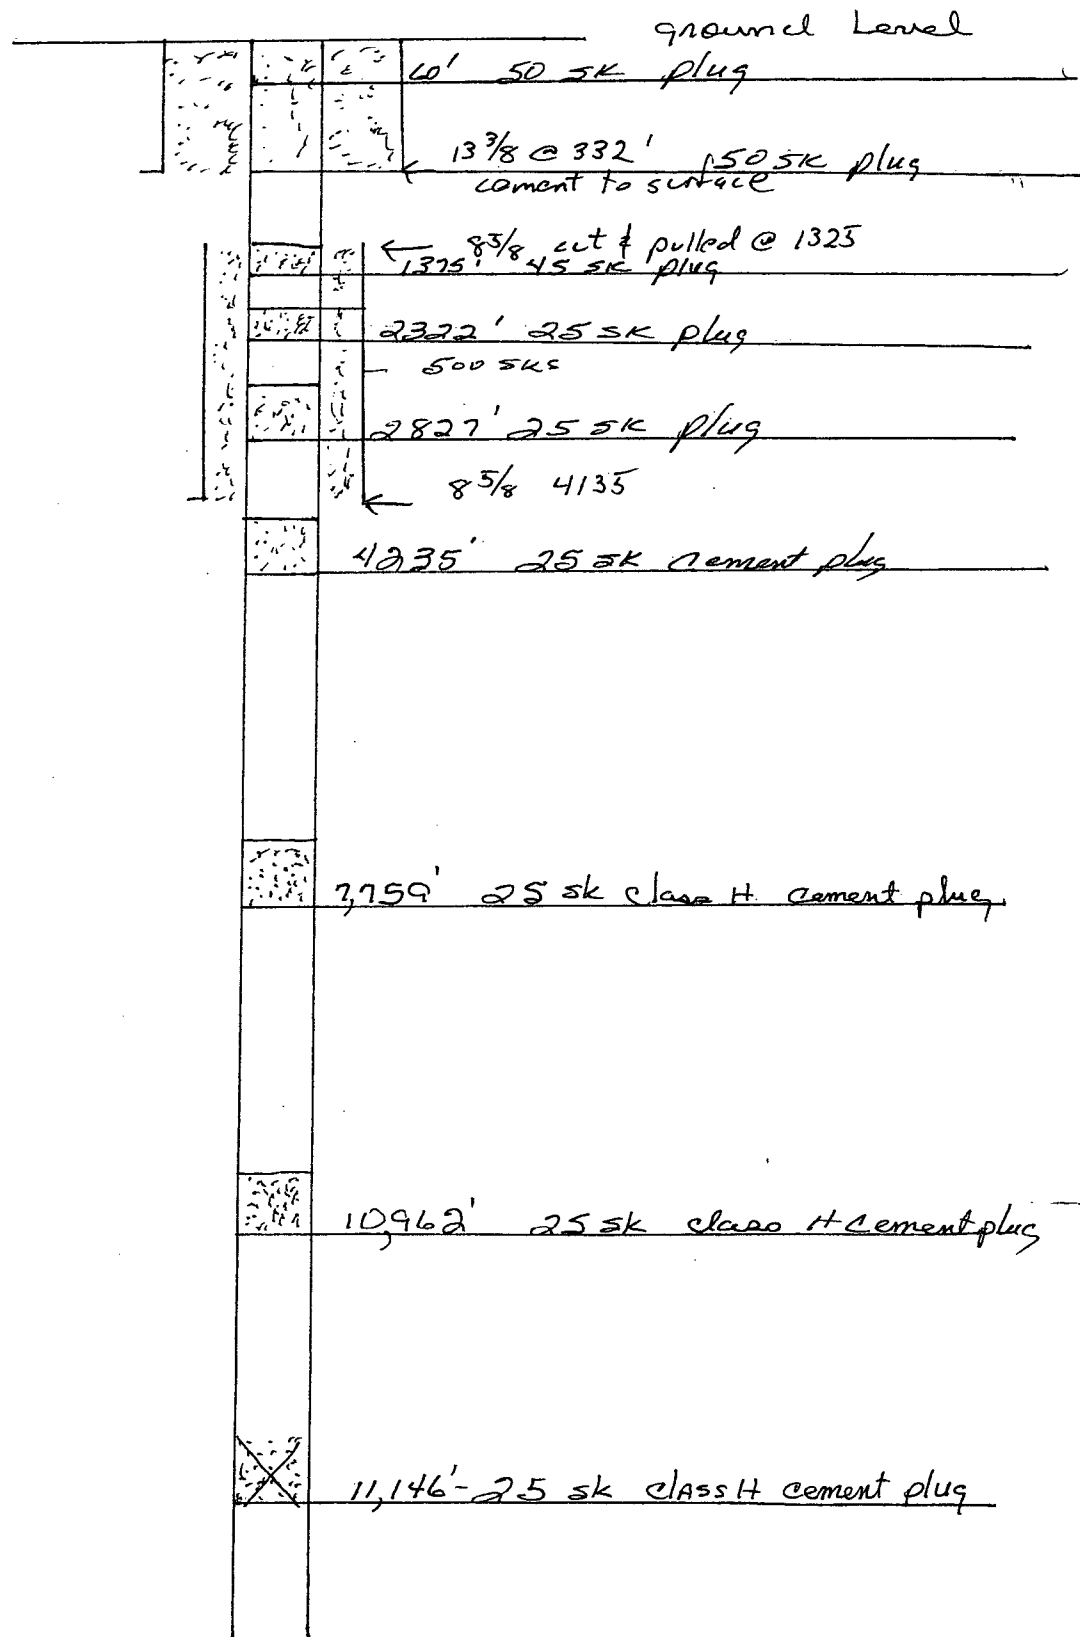 ground Level
60' 50 sk plug
13 3/8 @ 332' 50 sk plug
cement to surface
8 5/8 cut & pulled @ 1325
1375' 45 sk plug
2322' 25 sk plug
500 sks
2827' 25 sk plug
8 5/8 4135
4235' 25 sk cement plug
7,759' 25 sk class H cement plug
10,962' 25 sk class H cement plug
11,146'- 25 sk class H cement plug